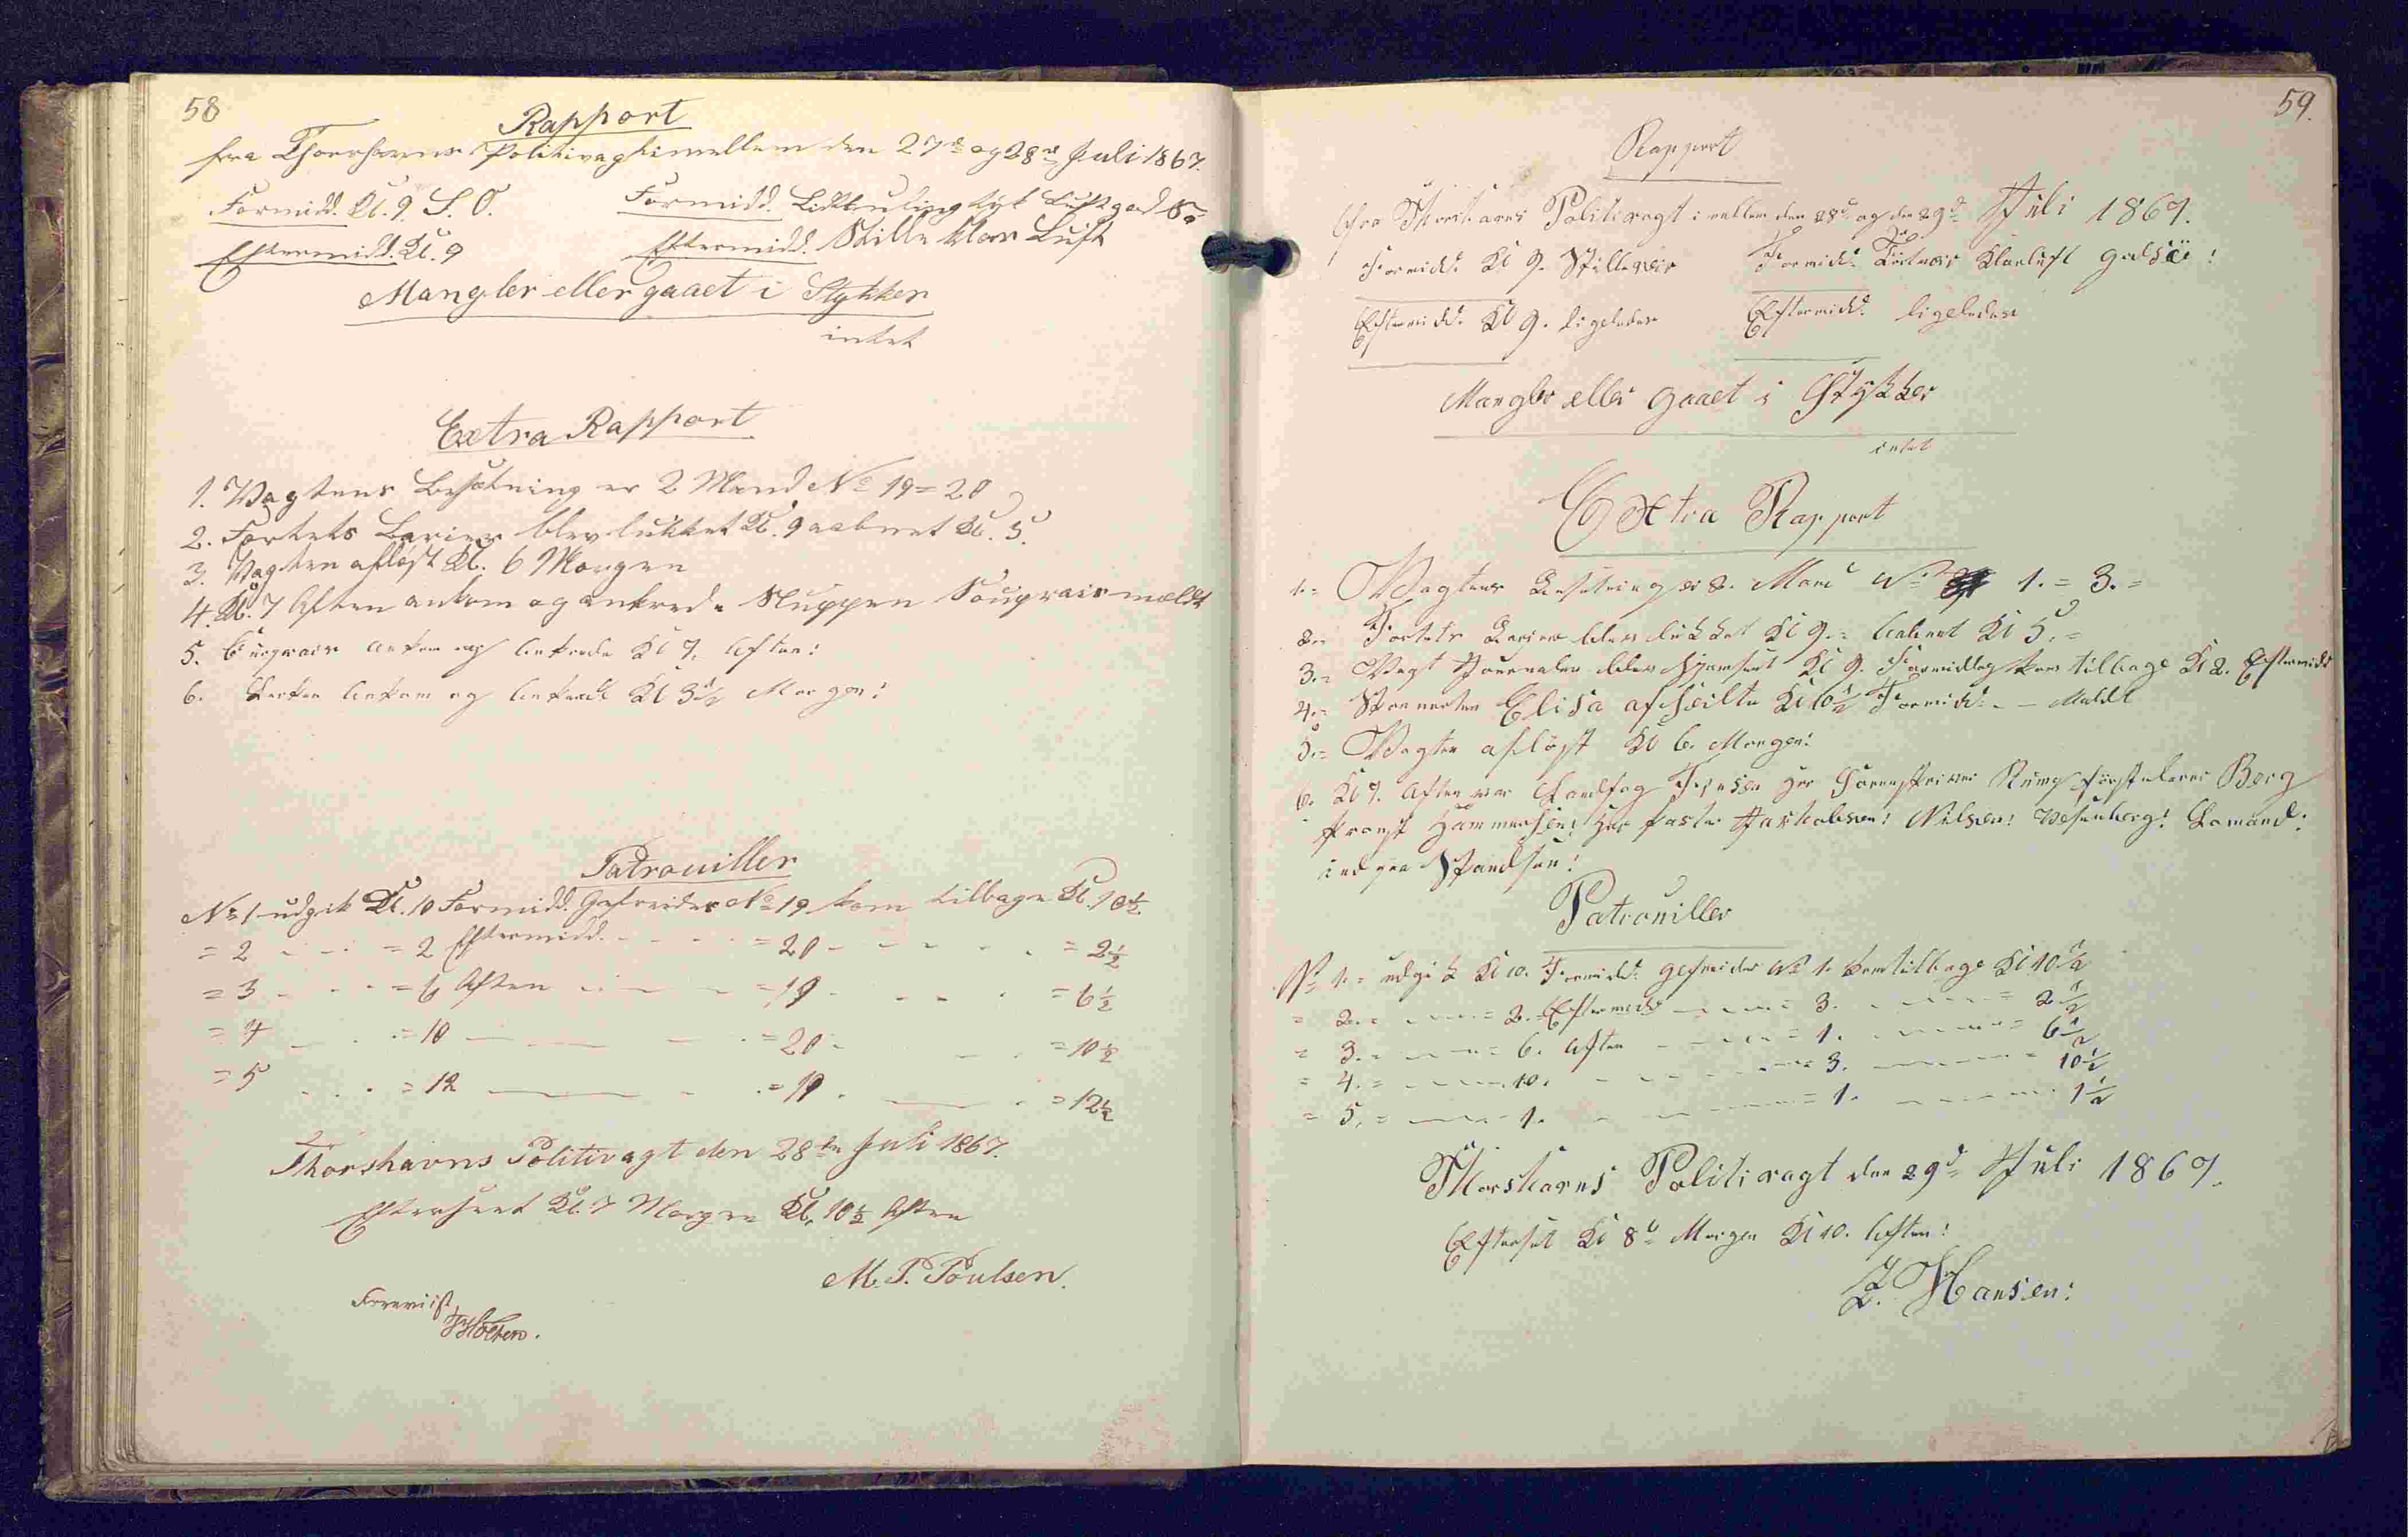 58
Rapport
fra Thorshavns Politivagt imellem den 27de og 28de Juli 1867.
Formidd. Kl. 9. S. O.
Formidd. Lidt Kuling tyk Luft god Sø
Eftermidd. Kl. 9
Eftermidd. Stille klar Luft
Mangler eller gaaet i Stykker
intet
Extra Rapport
1. Vagtens Besætning er 2 Mand No 19 = 20
2. Fortets Barier blev lukket Kl. 9 aabnet Kl. 5.
3. Vagten afløst Kl. 6 Morgen
4. Kl. 7 Aften ankom og ankrede Sluppen meldt
5. ankom og ankrede Kl 7. Aften!
6. ankom og ankrede Kl 3½ Morgen!
Patrouiller
No 1 udgik Kl. 10 Formidd. Gefreider No 19 kom tilbage Kl. 10½.
= 2 - - - = 2 Eftermidd. - - - = 20 - - - - = 2½
= 3 - - - = 6 Aften - - - = 19 - - - - = 6½
= 4 - - - = 10 - - - = 20 - - - = 10½
= 5 - - - = 12 - - - = 19 - - - = 12½
Thorshavns Politivagt den 28de Juli 1867.
Efterseet Kl. 7 Morgen Kl. 10½ Aften
M. P. Poulsen.
Foreviist
59.
Rapport
fra Thorshavns Politivagt imellem den 28de og den 29de Juli 1867.
Formidd. Kl 9. Stille
Formidd. Klarluft god Söe!
Eftermidd. Kl 9. ligeledes
Eftermidd. ligeledes
Mangler eller gaaet i Stykker
intet
Extra Rapport
1.= Vagtens Besetning er 2. Mand No 1. = 3. =
2.= Fortets Barier blev lukket Kl 9.= aabnet Kl 5.=
3.= Vagt Journalen blev Kl 9. Formiddag kom tilbage Kl 2. Eftermidd
4.= Skonnerten Elisa afseilte Kl 10½ Formidd. - - Meldt
5.= Vagten aflöst Kl 6. Morgen!
6. Kl 7. Aften var Landfog Herr Sorenskriver Berg
Provst Hammershen! Nilsen!
Skandsen!
Patrouiller
No 1.= udgik Kl 10. Formidd. gefreider No 1. kom tilbage Kl 10½
= 2.= - - - = 2. Eftermidd - - - = 3. - - - = 2½
= 3.= - - - = 6. Aften - - - = 1. - - - = 6½
= 4.= - - - 10. - - - 3. - - - = 10½
= 5.= - - - 1. - - - = 1. - - - 1½
Thorshavns Politivagt den 29de Juli 1867.
Efterset Kl 8½ Morgen Kl 10. Aften!
Z. Hansen!